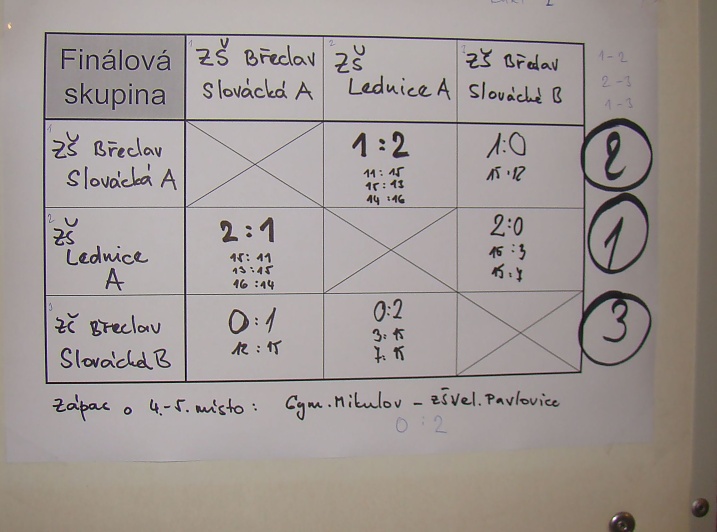 Finálová
skupina
1 ZŠ Břeclav
Slovácká A
2 ZŠ
Lednice A
3 ZŠ Břeclav
Slovácká B
1-2
2-3
1-3
1 ZŠ Břeclav
Slovácká A
1:2
11:15
15:13
14:16
1:0
15:12
2
2 ZŠ
Lednice
A
2:1
15:11
13:15
16:14
2:0
15:3
15:7
1
3 ZŠ Břeclav
Slovácká B
0:1
12:15
0:2
3:15
7:15
3
Zápas o 4.-5. místo: Gym. Mikulov - ZŠ Vel. Pavlovice
0:2